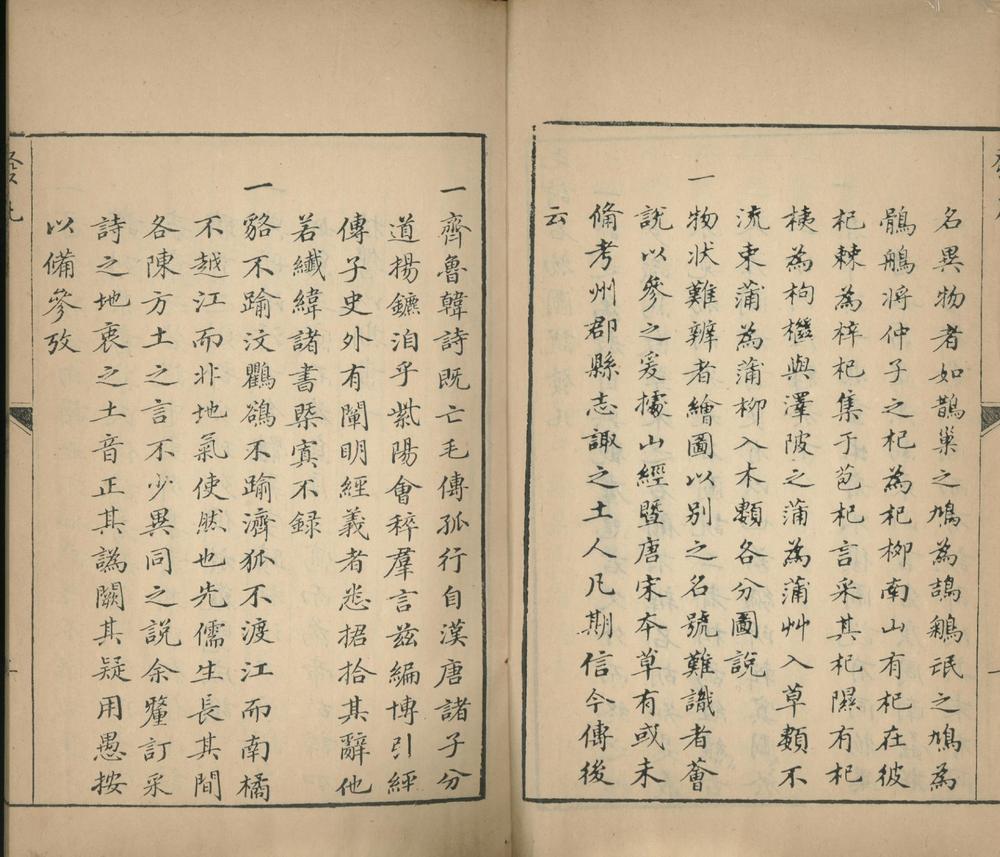 名異物者如鵲巢之鳩為鴶鵴氓之鳩為
鶻鵃將仲子之杞為杞柳南山有杞在彼
杞棘為梓杞集于苞杞言采其杞隰有杞
桋為枸檵與澤陂之蒲為蒲艸入草類不
流束蒲為蒲柳入木類各分圖說
一物狀難辨者繪圖以別之名號難識者薈
說以參之爰據山經暨唐宋本草有或未
備考州郡縣志諏之土人凡期信今傳後
云
一齊魯韓詩既亡毛傳孤行自漢唐諸子分
道揚鑣洎乎紫陽會稡羣言茲編博引經
傳子史外有闡明經義者悉捃拾其辭他
若纖緯諸書槩寘不録
一貉不踰汶鸜鵒不踰濟狐不渡江而南橘
不越江而北地氣使然也先儒生長其間
各陳方土之言不少異同之說余釐訂采
詩之地衷之土音正其譌闕其疑用愚按
以備參攷